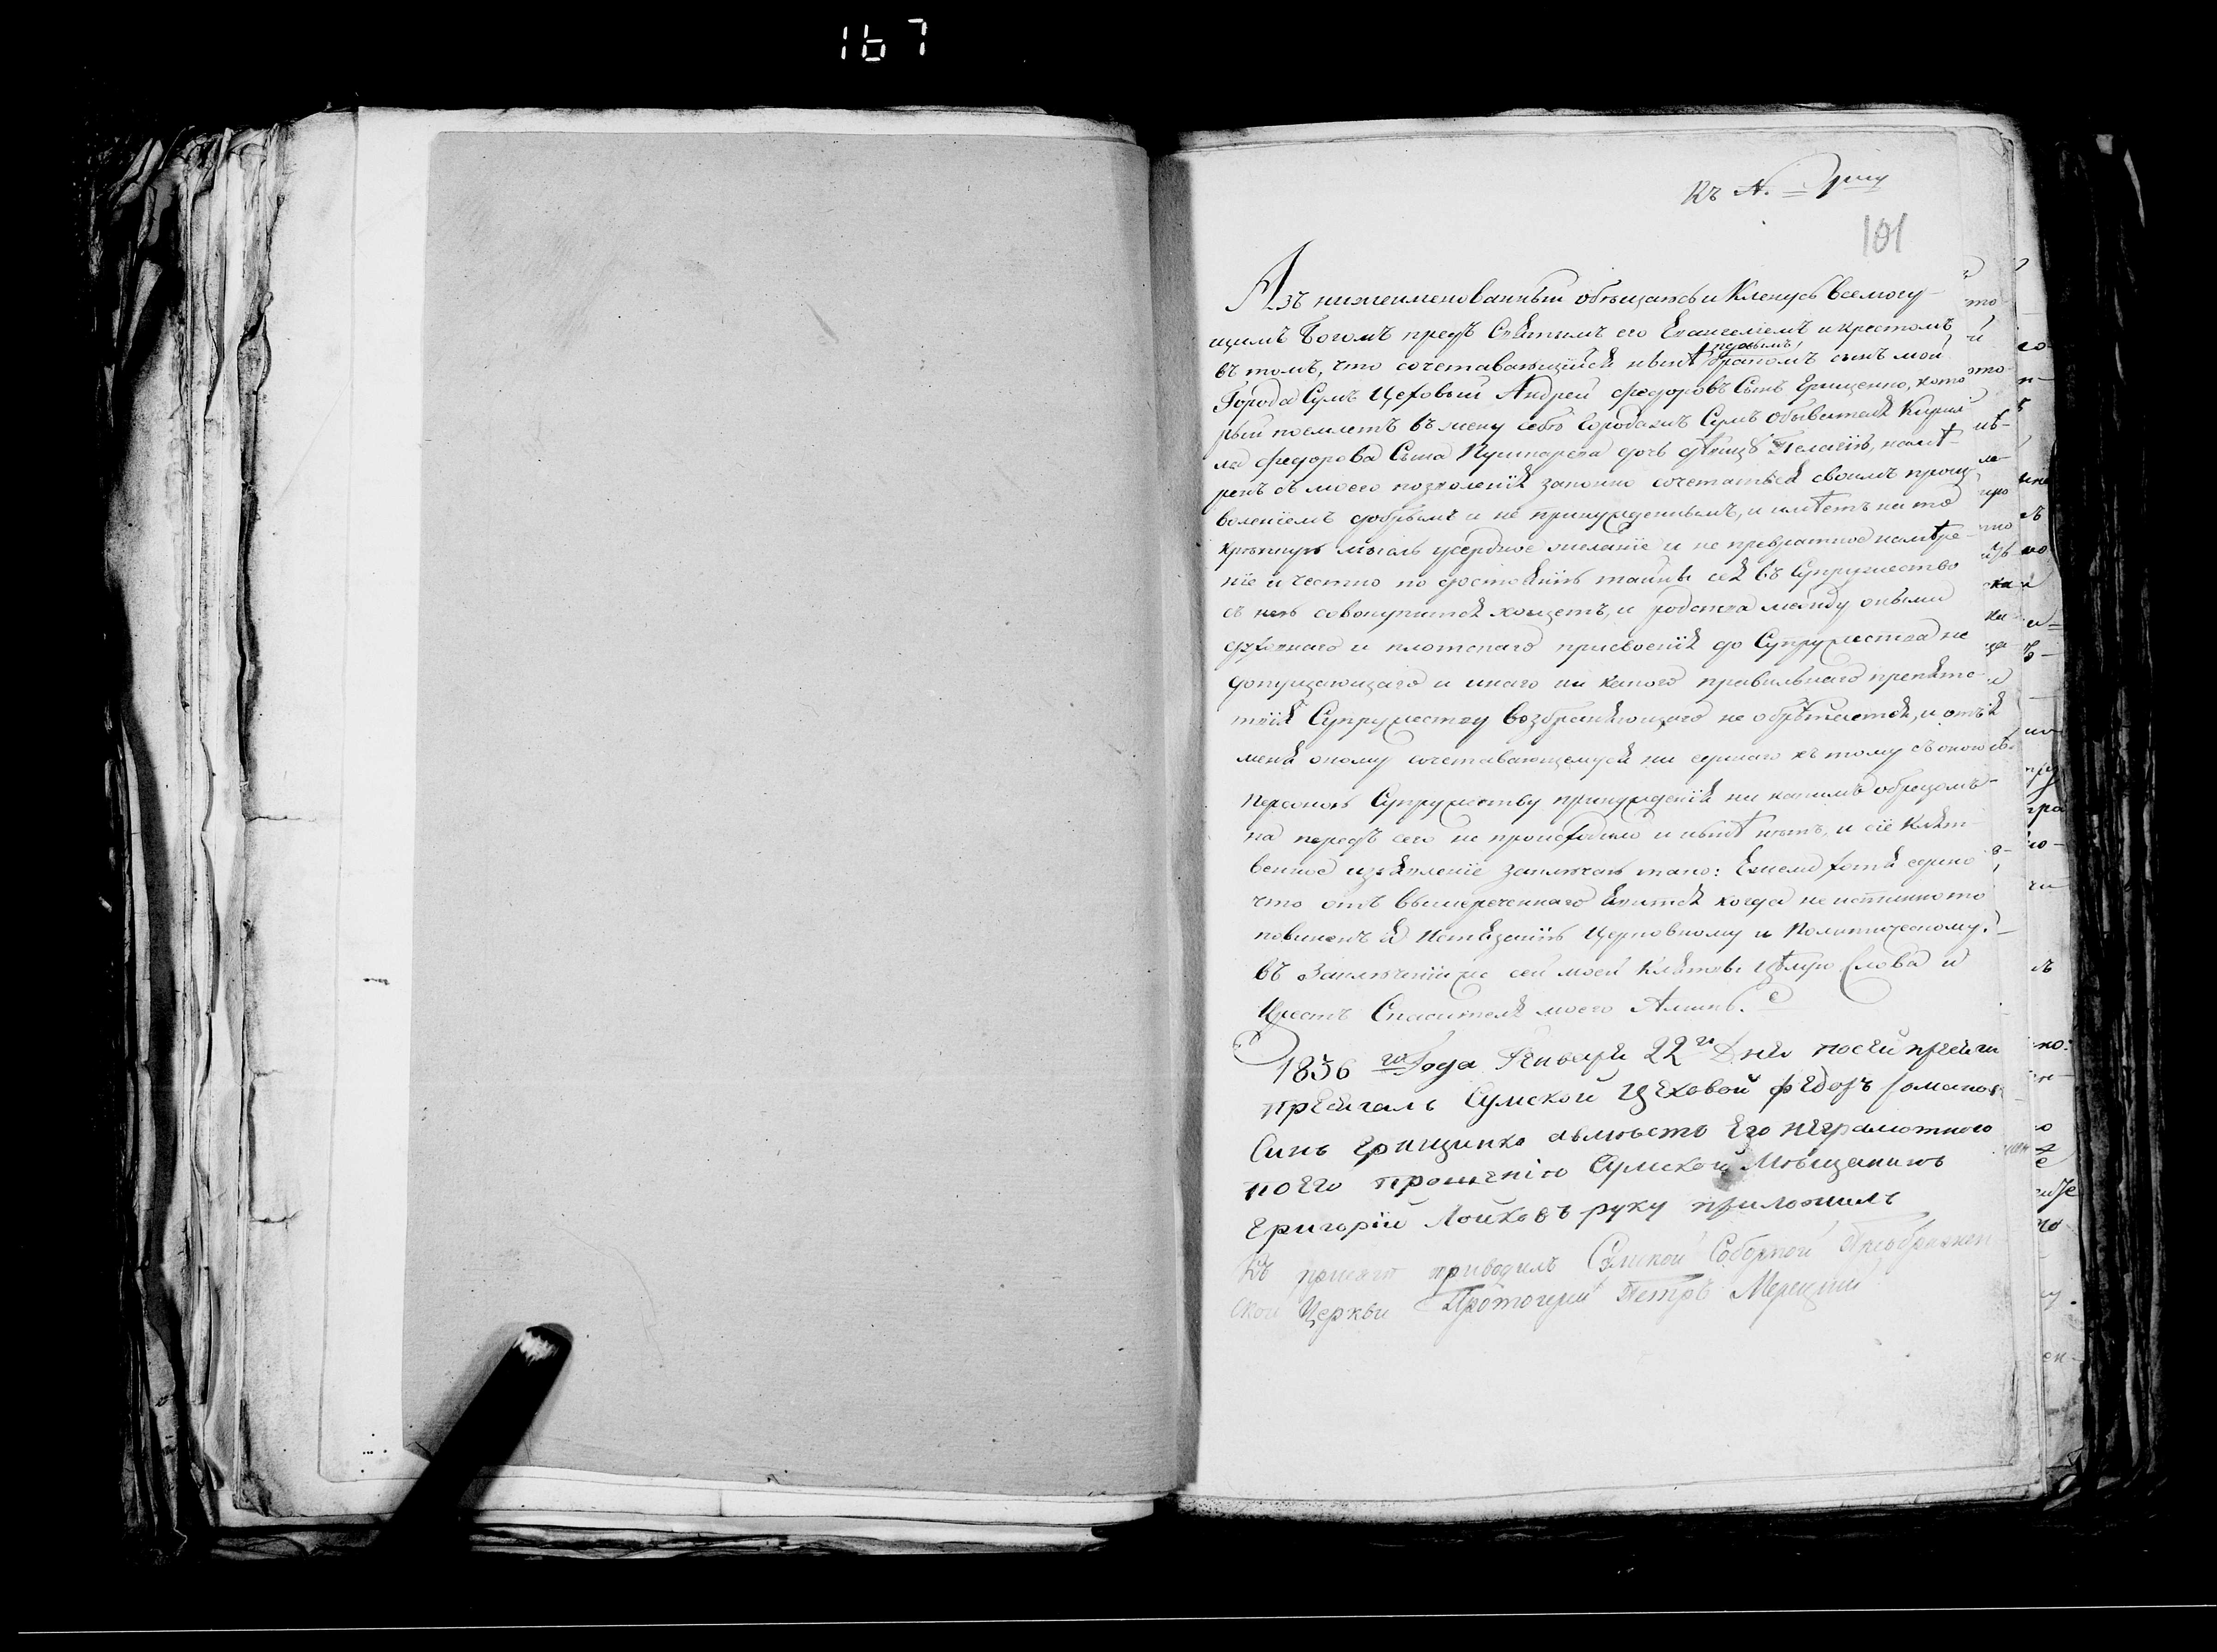 167
Къ №
101
Азъ нижеименованный обѣщаюсь и Кленусь Всемогу-
щимъ Богомъ предъ Святымъ его Евангелiемъ и крестомъ
въ томъ, что сочетавающiйся нынѣ первымъ бракомъ сынъ мой
Города Сумъ Цеховый Андрей Федоровъ Сынъ Грищенко, кото
рый поемлетъ въ жену себѣ Города Сумъ обывателя Кирил
ла Федорова Сына Пушкарева дочь дѣвицу Пелагiю, намѣ-
ренъ съ моего позволенiя законно сочетаться своимъ произ
воленiемъ добрымъ и не принужденнымъ, и имѣетъ на то
крѣпкую мысль усердное желанiе и не превратное намѣре-
нiе и честно по достоянiю тайны сея въ Супружество
съ нею совокупится хощетъ, и родства между оными
духовнаго и плотскаго присвоенiя до Супружества не
допущающаго и инаго ни какого правильнаго препятс
твiя Супружеству возбраняющаго не обрѣтается, и отъ
меня оному сочетавающемуся ни единаго къ тому съ оною
персоною Супружеству принужденiя ни какимъ образомъ
на передъ сего не происходило и нынѣ нѣтъ, и сiе Клят-
венное изъявленiе заключаю тако: Ежели хотя едино
что отъ вышереченнаго явится когда не истинно то
повиненъ я Истязанiю Церковному и Политическому.
въ Заключенiи же сей моей Клятвы Цѣлую Слова и
Крестъ Спасителя моего Аминь.
1836 го Года Генваря 22 го Дня посей присяги
присягалъ Сумской Цеховой Федоръ Романов
Синъ Грищинко авмѣсто Его неграмотного
поего прошенiю Сумской Мѣщанинъ
Григорiй Лойковъ руку приложилъ
Къ присяги приводилъ Сумской Соборной Преображен
ской Церкви Протоiерей Петръ